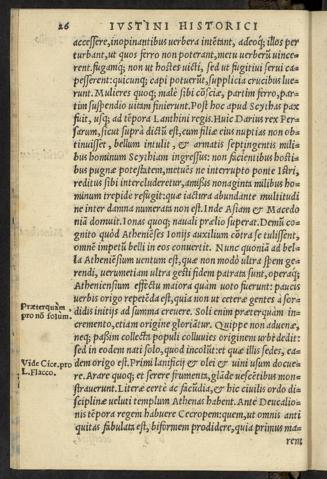 26 IVSTINI HISTORICI
accessere, inopinantibus verbera intētant, adeoq; illos per
turbant, ut quos ferro non poterant, metu verberū vince-
rent. fugamq; non ut hostes victi, sed ut fugitivi servi ca-
pesserent: quicunq; capi potuerūt, supplicia crucibus lue-
runt. Mulieres quoq; malè sibi cōsciæ, partim ferro, par-
tim suspendio vitam finierunt. Post hoc apud Scythas pax
fuit, usq; ad tēpora Lanthini regis. Huic Darius rex Per-
sarum, sicut suprà dictū est, cum filiæ eius nuptias non ob-
tinuisset, bellum intulit, & armatis septingentis mili-
bus hominum Scythiam ingressus: non facientibus hosti-
bus pugnæ potestatem, metuēs ne interrupto ponte Istri,
reditus sibi intercluderetur, amissis nonaginta milibus ho-
minum trepidè refugit: quæ iactura abundante multitudi
ne inter damna numerata non est. Inde Asiam & Macedo
niā domuit. Ionas quoq; navali prælio superat. Demū co-
gnito quòd Atheniēses Ionijs auxilium cōtra se tulissent,
omnē impetū belli in eos convertit. Nunc quoniā ad bel-
la Atheniēsium ventum est, quæ non modò ultra spem ge-
rendi, verumetiam ultra gesti fidem patrata sunt, operaq;
Atheniensium effectu maiora quàm voto fuerunt: paucis
verbis origo repetēda est, quia non ut ceteræ gentes à sor-
didis initijs ad summa crevere. Soli enim præterquàm in-
cremento, etiam origine gloriātur. Quippe non advenæ,
neq; passim collecta populi colluvies originem urbi dedit:
sed in eodem nati solo, quod incolūt: et quæ illis sedes, ea-
dem origo est. Primi lanificij & olei & vini usum docue-
re. Arare quoq; et serere frumenta, glāde vescētibus mon-
straverunt. Literæ certè ac facūdia, & hic civilis ordo di-
sciplinæ veluti templum Athenas habent. Ante Deucalio-
nis tēpora regem habuere Cecropem: quem, ut omnis anti
quitas fabulata est, biformem prodidere, quia primus ma-
rem
Præterquàm
pro nō solum.
Vide Cice. pro
L. Flacco.